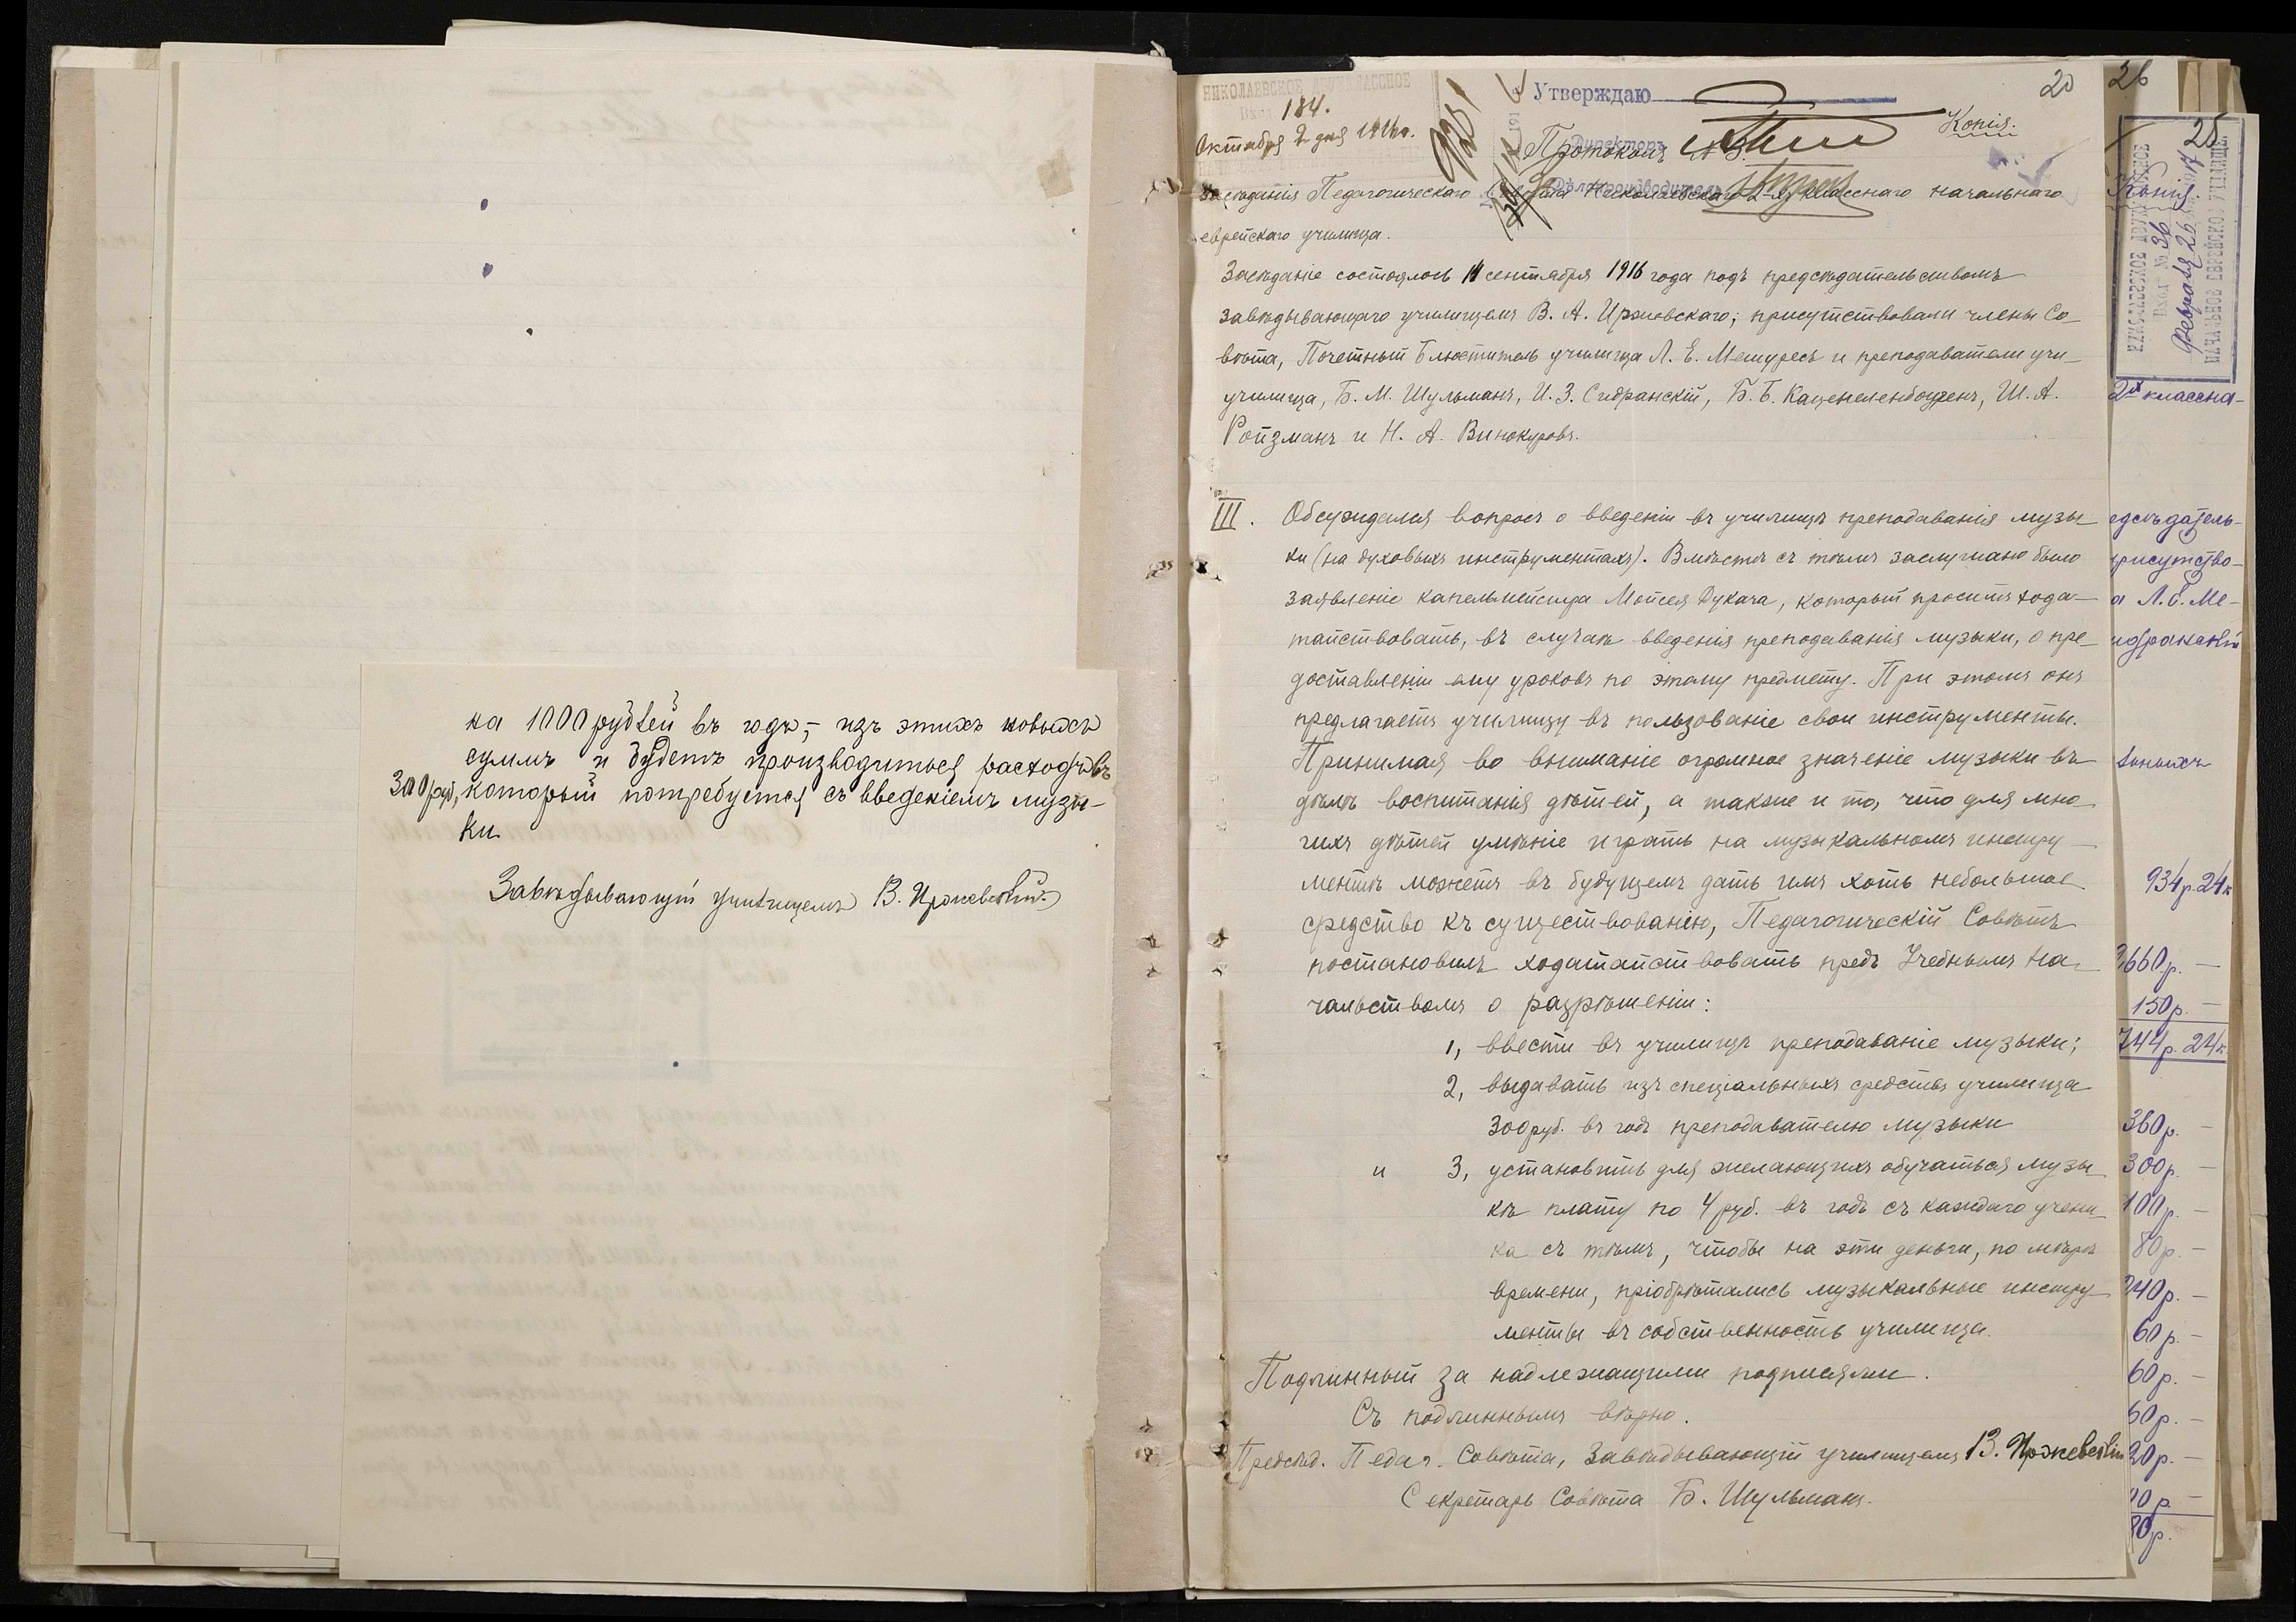 на 1000 рублей въ годъ, – изъ этихъ новыхъ
суммъ и будетъ производиться расходъ въ
300 руб, который потребуется съ введеніемъ музы-
ки.
Завѣдывающій училищемъ В. Иржевскій
НИКОЛАЕВСКОЕ ДВУХКЛАССНОЕ
Вход 184.
Октября 2 дня 1916 г.
Утверждаю
20
Копія.
Директоръ
Протоколъ №
Дѣлопроизводитель
Засѣданія Педагогическаго Совѣта Николаевскаго 2-хъ класснаго начальнаго
еврейскаго училища.
Засѣданіе состоялось 11 сентября 1916 года подъ предсѣдательствомъ
завѣдывающаго училищемъ В. А. Иржевскаго; присутствовали члены Со-
вѣта, Почетный Блюститель училища Л. Е. Мешуресъ и преподаватели учи-
училища, Б. М. Шульманъ, И. З. Сидранскій, Б. Б. Каценеленбогенъ, Ш. А.
Ройзманъ и Н. А. Винокуровъ.
III. Обсуждался вопросъ о введеніи въ училищѣ преподаванія музы-
ки (на духовыхъ инструментахъ). Вмѣстѣ съ тѣмъ заслушано было
заявленіе капельмейстера Мойсея Дукача, который проситъ хода-
тайствовать, въ случаѣ введенія преподаванія музыки, о пре-
доставленіи ему уроковъ по этому предмету. При этомъ онъ
предлагаетъ училищу въ пользованіе свои инструменты.
Принимая во вниманіе огромное значеніе музыки въ
дѣлѣ воспитанія дѣтей, а также и то, что для мно-
гихъ дѣтей умѣніе играть на музыкальномъ инстру-
ментѣ можетъ въ будущемъ дать имъ хоть небольшое
средство къ существованію, Педагогическій Совѣтъ
постановилъ ходатайствовать предъ Учебнымъ На-
чальствомъ о разрѣшеніи:
1, ввести въ училищѣ преподаваніе музыки;
2, выдавать изъ спеціальныхъ средствъ училища
300 руб. въ годъ преподавателю музыки
и 3, установить для желающихъ обучаться музы-
кѣ плату по 4 руб. въ годъ съ каждаго учени-
ка съ тѣмъ, чтобы на эти деньги, по мѣрѣ
времени, пріобрѣтались музыкальные инстру-
менты въ собственность училища.
Подлинный за надлежащими подписями.
Съ подлиннымъ вѣрно.
Предсѣд. Педаг. Совѣта, Завѣдывающій училищемъ В. Иржевскій
Секретарь Совѣта Б. Шульманъ.
26
25
Копія.
НИКОЛАЕВСКОЕ ДВУХКЛАССНОЕ
Вход. № 36
Февраля 26 дня 1917
НАЧАЛЬНОЕ ЕВРЕЙСКОЕ УЧИЛИЩЕ.
2хъ классна-
едсѣдатель-
присутство-
а Л. Е. Ме-
идранскій
934 р. 24 к
3660 р. —
150 р. —
744 р. 24 к
360 р. —
300 р. —
100 р. —
80 р. —
240 р. —
60 р. —
60 р. —
60 р. —
20 р. —